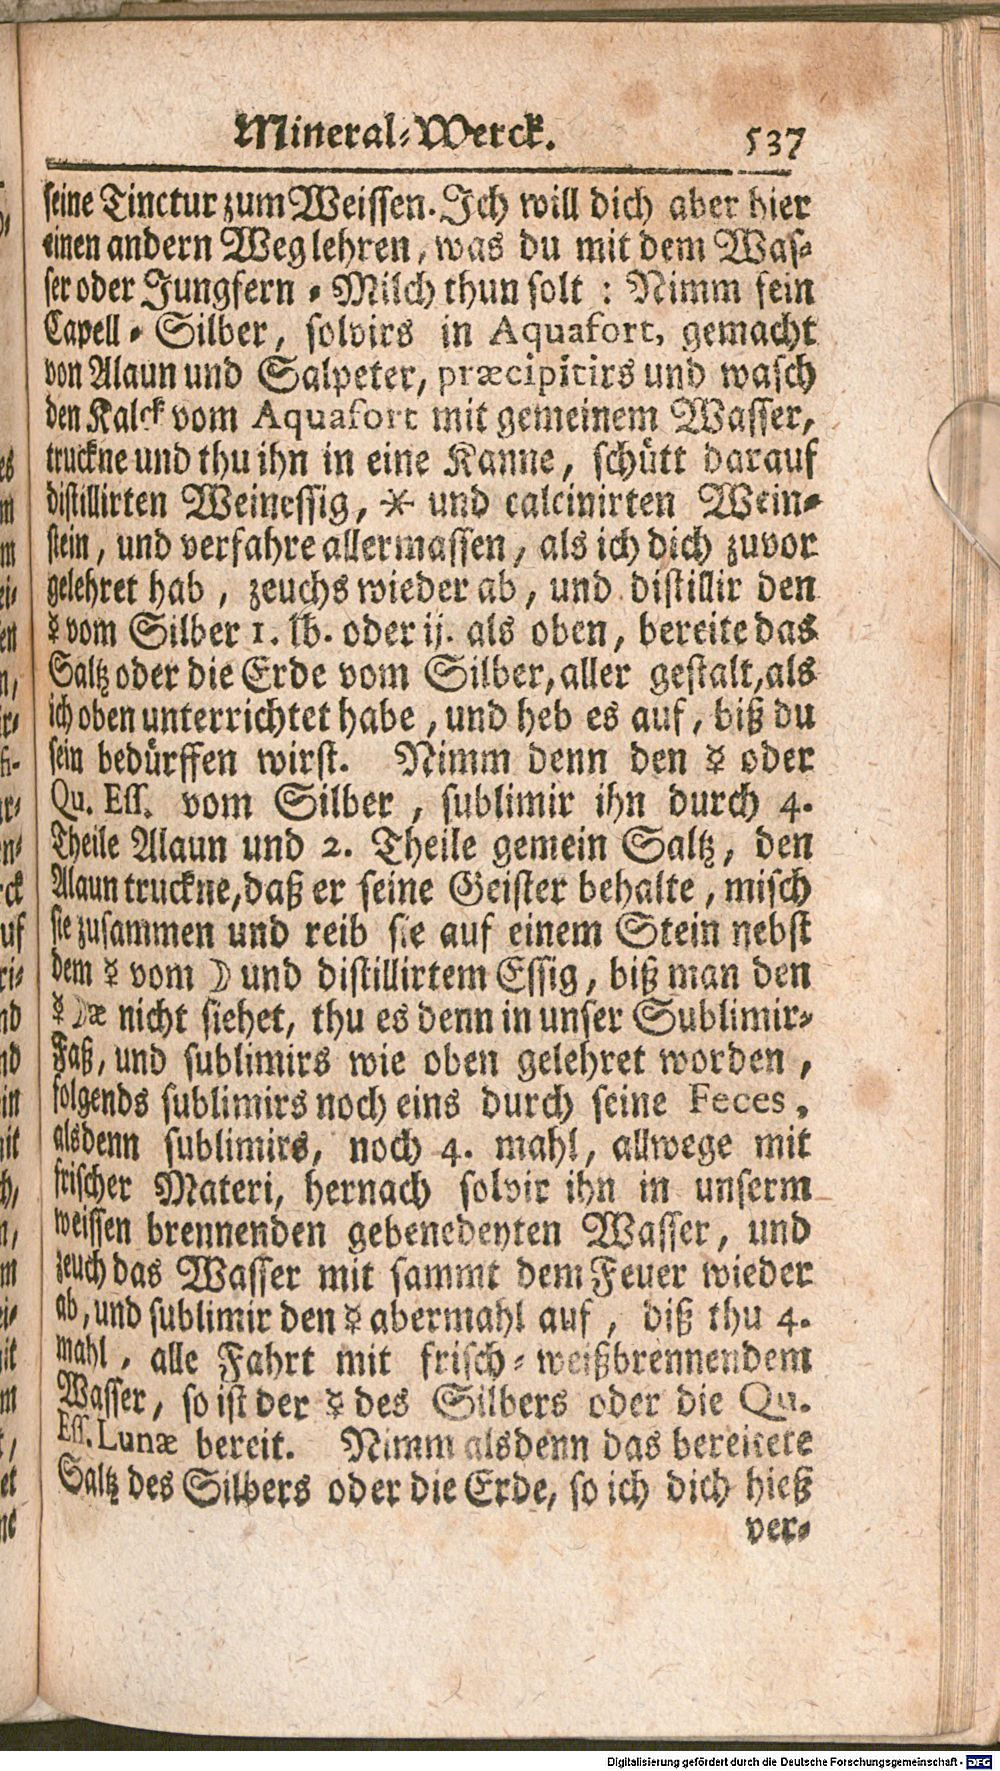 Mineral-Werck. 537
seine Tinctur zum Weissen. Ich will dich aber hier
einen andern Weg lehren, was du mit dem Was-
ser oder Jungfern-Milch thun solt: Nimm fein
Capell-Silber, solvirs in Aquafort, gemacht
von Alaun und Salpeter, præcipitirs und wasch
den Kalck vom Aquafort mit gemeinem Wasser,
truckne und thu ihn in eine Kanne, schütt darauf
distillirten Weinessig, ✶ und calcinirten Wein-
stein, und verfahre allermassen, als ich dich zuvor
gelehret hab, zeuchs wieder ab, und distillir den
☿ vom Silber 1. lb. oder ij. als oben, bereite das
Saltz oder die Erde vom Silber, aller gestalt, als
ich oben unterrichtet habe, und heb es auf, biß du
sein bedürffen wirst. Nimm denn den ☿ oder
Qu. Ess. vom Silber, sublimir ihn durch 4.
Theile Alaun und 2. Theile gemein Saltz, den
Alaun truckne, daß er seine Geister behalte, misch
sie zusammen und reib sie auf einem Stein nebst
dem ☿ vom ☽ und distillirtem Essig, biß man den
☿ ☽æ nicht siehet, thu es denn in unser Sublimir-
Faß, und sublimirs wie oben gelehret worden,
folgends sublimirs noch eins durch seine Feces,
alsdenn sublimirs, noch 4. mahl, allwege mit
frischer Materi, hernach solvir ihn in unserm
weissen brennenden gebenedeyten Wasser, und
zeuch das Wasser mit sammt dem Feuer wieder
ab, und sublimir den ☿ abermahl auf, diß thu 4.
mahl, alle Fahrt mit frisch-weißbrennendem
Wasser, so ist der ☿ des Silbers oder die Qu.
Ess. Lunæ bereit. Nimm alsdenn das bereitete
Saltz des Silbers oder die Erde, so ich dich hieß
ver-
Digitalisierung gefördert durch die Deutsche Forschungsgemeinschaft - DFG